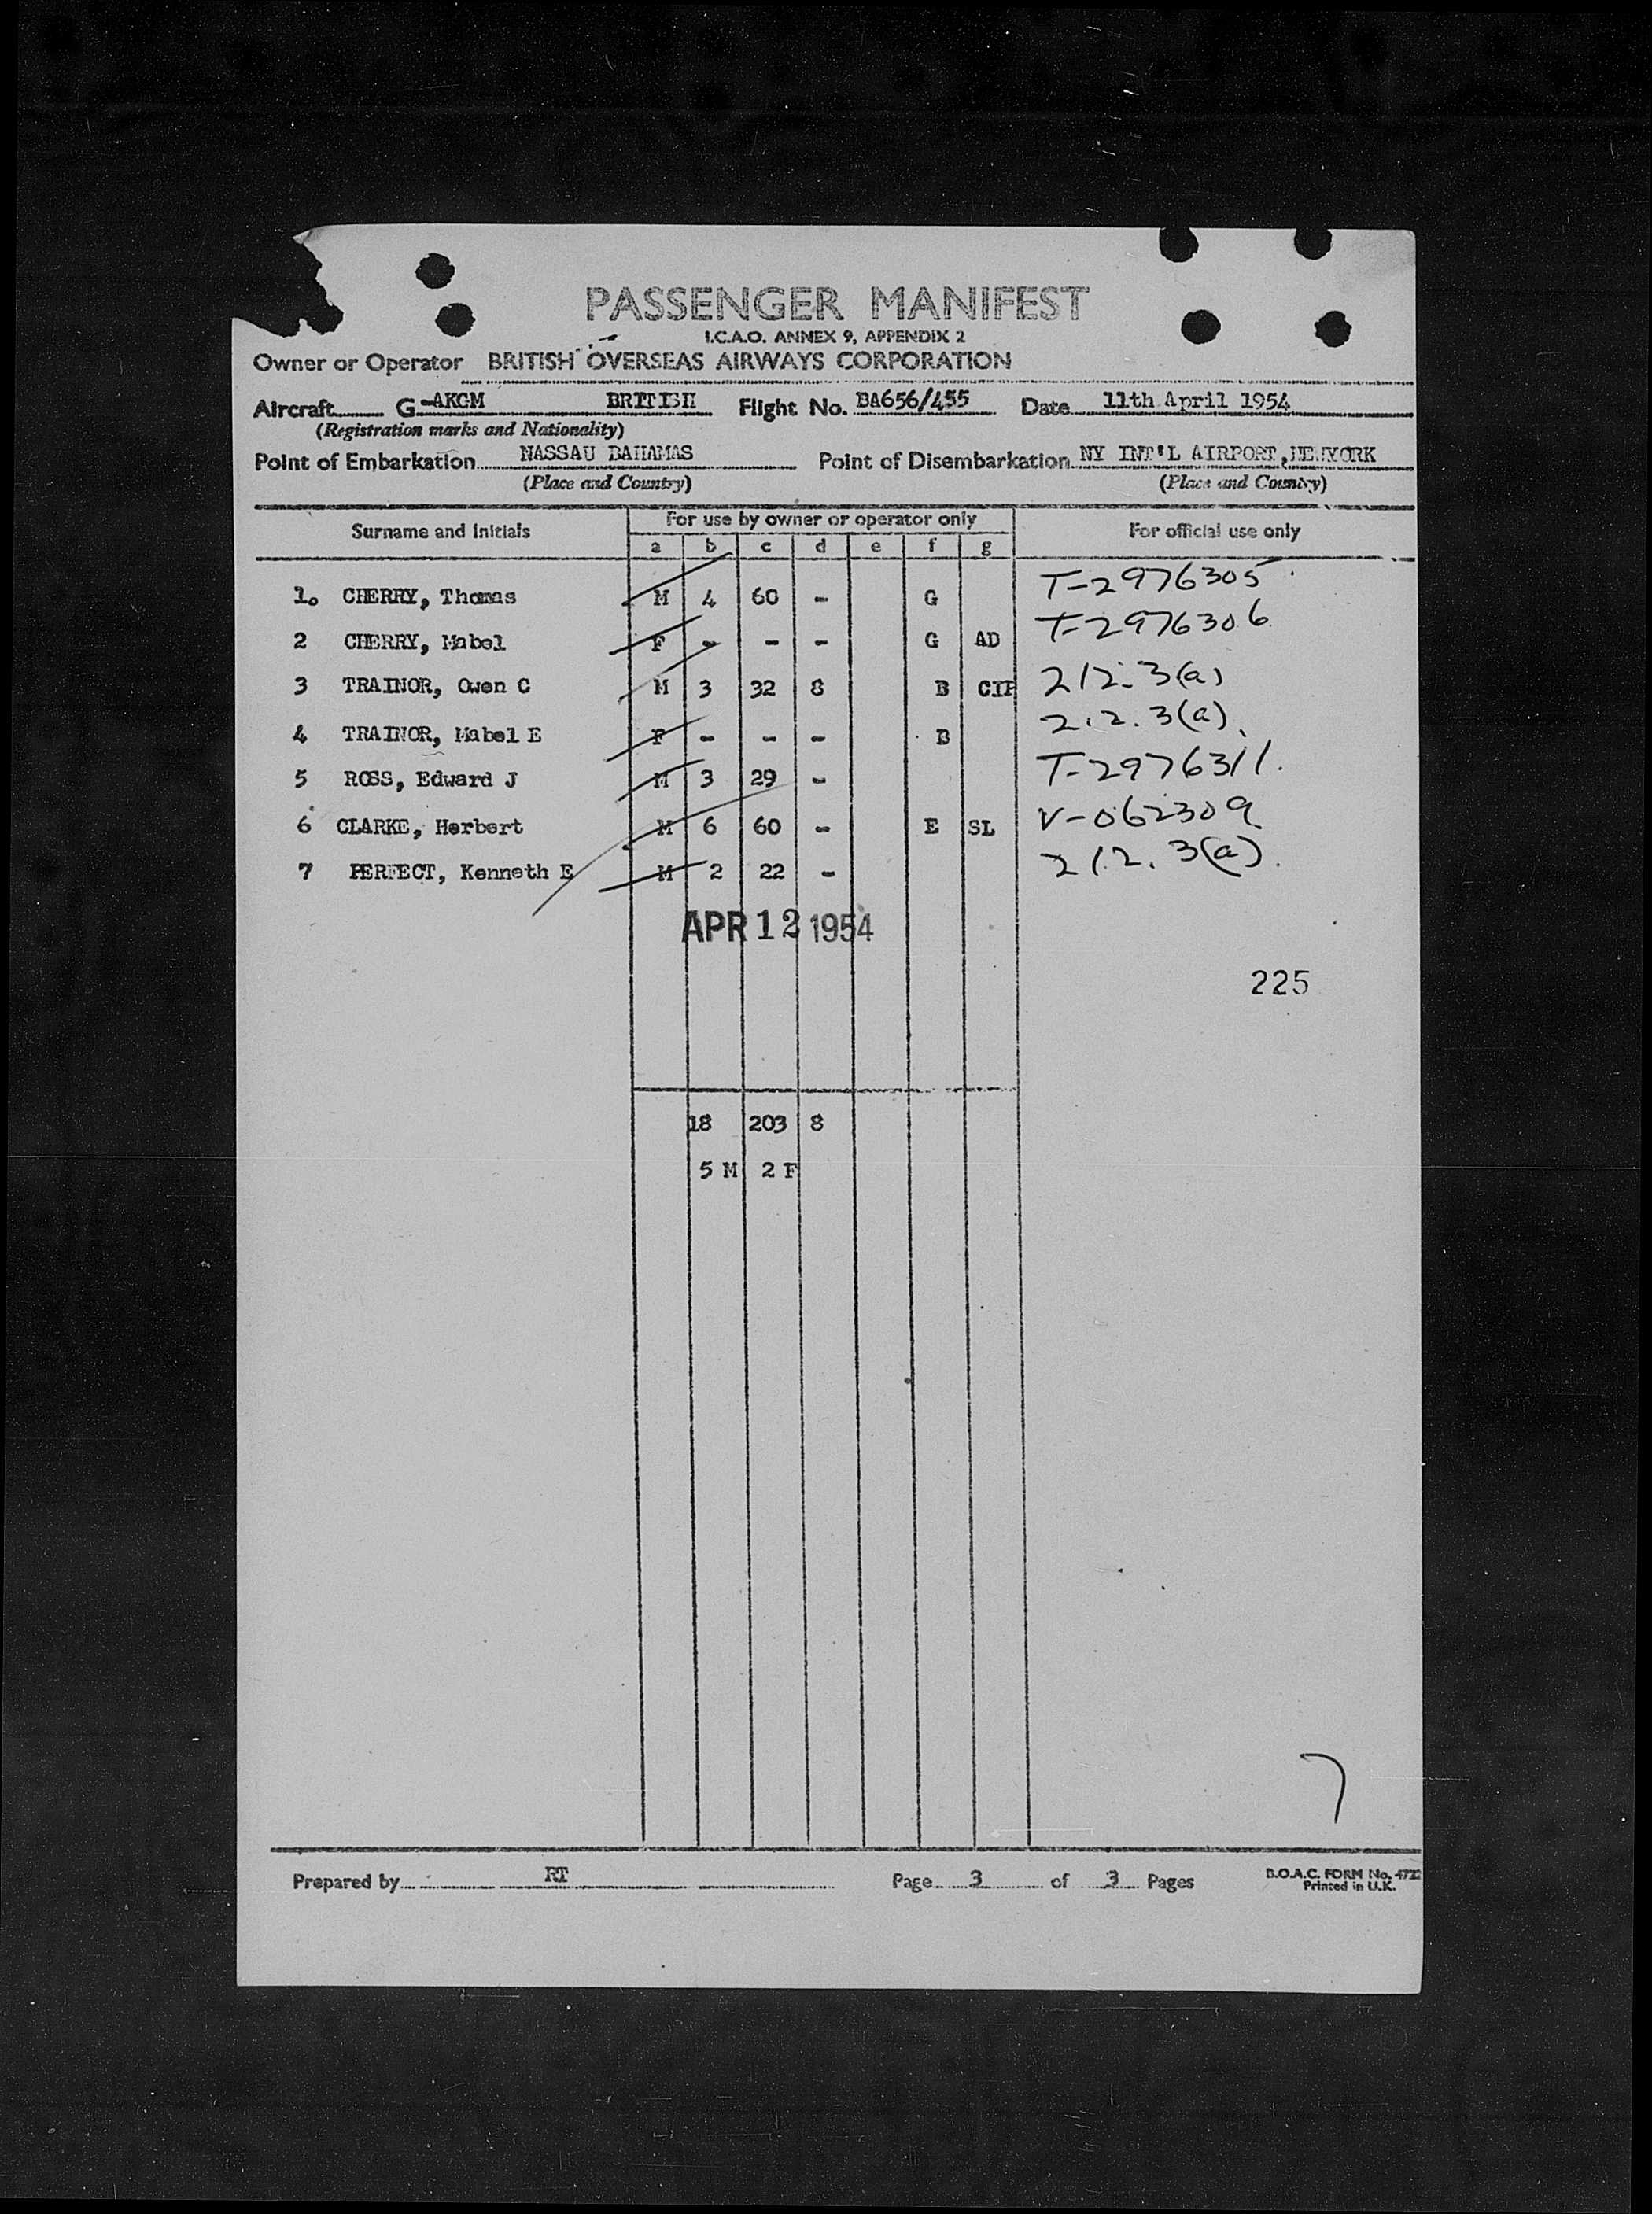 PASSENGER MANIFEST
I.C.A.O. ANNEX 9, APPENDIX 2
Owner or Operator BRITISH OVERSEAS AIRWAYS CORPORATION
Aircraft G-AKGM BRITISH Flight No. BA656/455 Date 11th April 1954
(Registration marks and Nationality)
Point of Embarkation NASSAU BAHAMAS Point of Disembarkation NY INT'L AIRPORT, NEWYORK
(Place and Country) (Place and Country)
Surname and Initials For use by owner or operator only For official use only
a b c d e f g
1. CHERRY, Thomas M 4 60 - G T-2976305
2 CHERRY, Mabel F - - - G AD T-2976306
3 TRAINOR, Owen C M 3 32 8 B CIP 212.3(a)
4 TRAINOR, Mabel E F - - - B 212.3(a)
5 ROSS, Edward J M 3 29 - T-2976311
6 CLARKE, Herbert M 6 60 - E SL V-062309
7 PERFECT, Kenneth E M 2 22 - 212.3(a)
APR 12 1954
225
18 203 8
5 M 2 F
7
Prepared by RT Page 3 of 3 Pages B.O.A.C. FORM No. 4722
Printed in U.K.